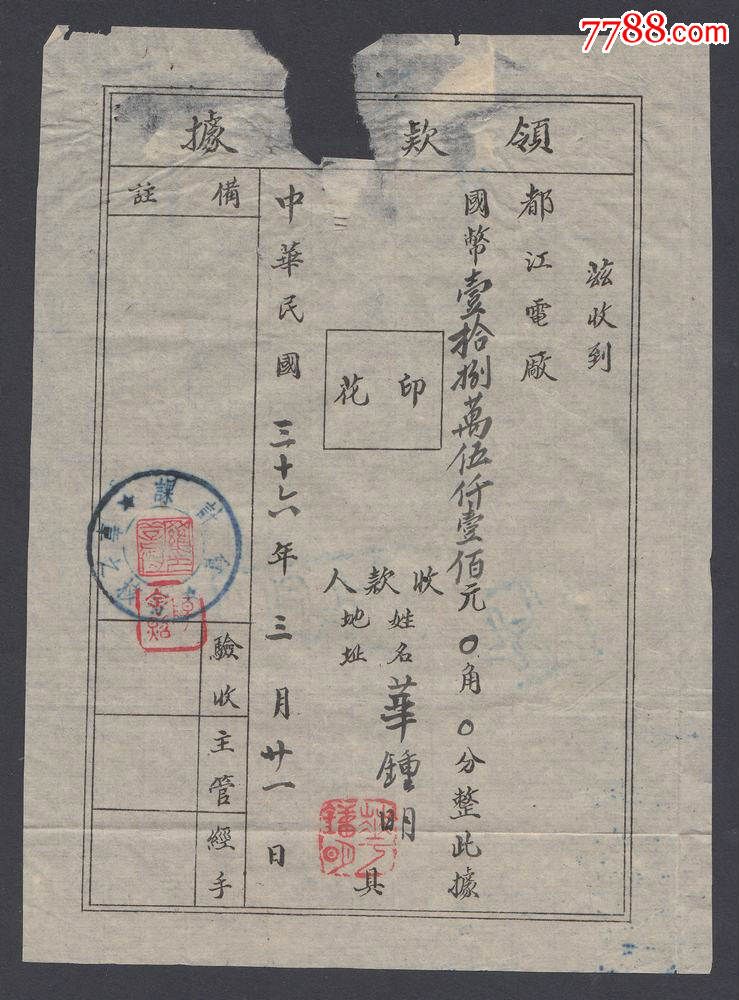 7788.com
領款據
茲收到
都江電廠
國幣壹拾捌萬伍仟壹佰元0角0分整此據
印花
收款人
姓名 華鍾明
地址
具
中華民國三十六年三月廿一日
備註
驗收
主管
經手
會計課